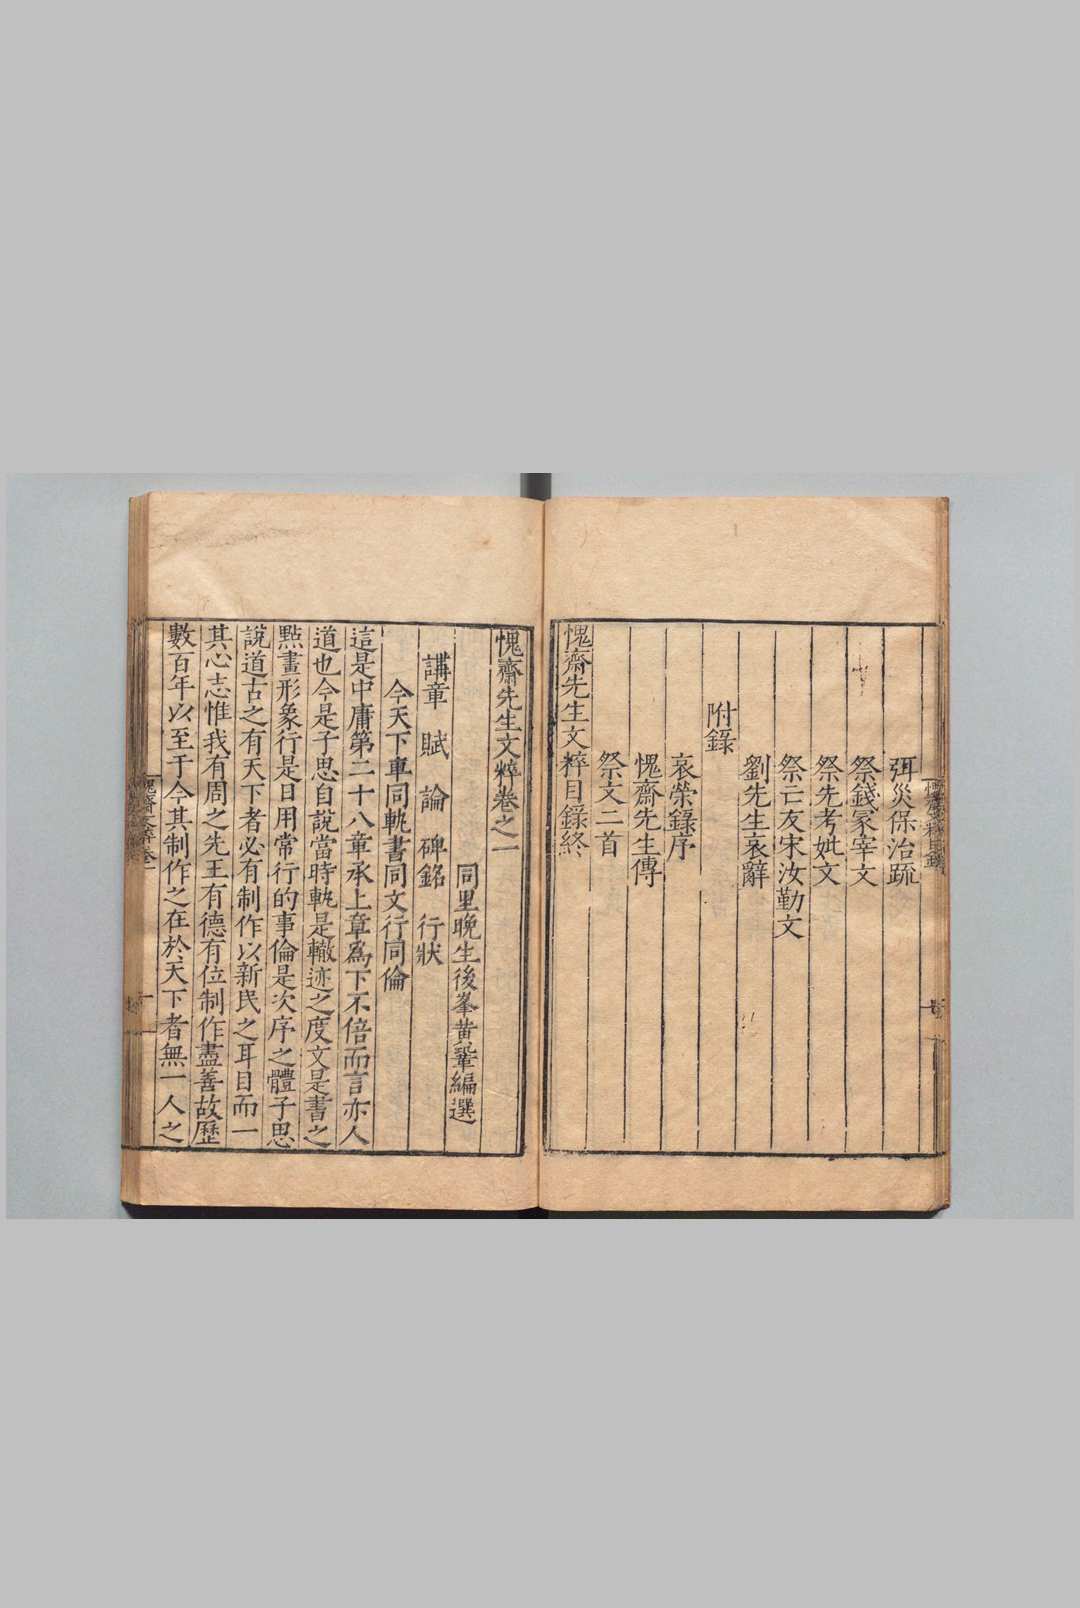 弭災保治疏
祭錢冢宰文
祭先考妣文
祭亡友宋汝勤文
劉先生哀辭
附錄
哀榮錄序
愧齋先生傳
祭文二首
愧齋先生文粹目錄終
愧齋先生文粹卷之一
同里晚生後峯黃鞏編選
講章 賦 論 碑銘 行狀
今天下車同軌書同文行同倫
這是中庸第二十八章承上章為下不倍而言亦人
道也今是子思自說當時軌是轍迹之度文是書之
點畫形象行是日用常行的事倫是次序之體子思
說道古之有天下者必有制作以新民之耳目而一
其心志惟我有周之先王有德有位制作盡善故歷
數百年以至于今其制作之在於天下者無一人之
愧齋文粹卷一